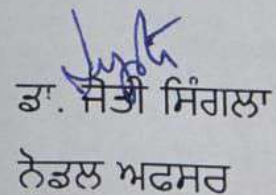 ਡਾ. ਜੋਤੀ ਸਿੰਗਲਾ
ਨੋਡਲ ਅਫਸਰ